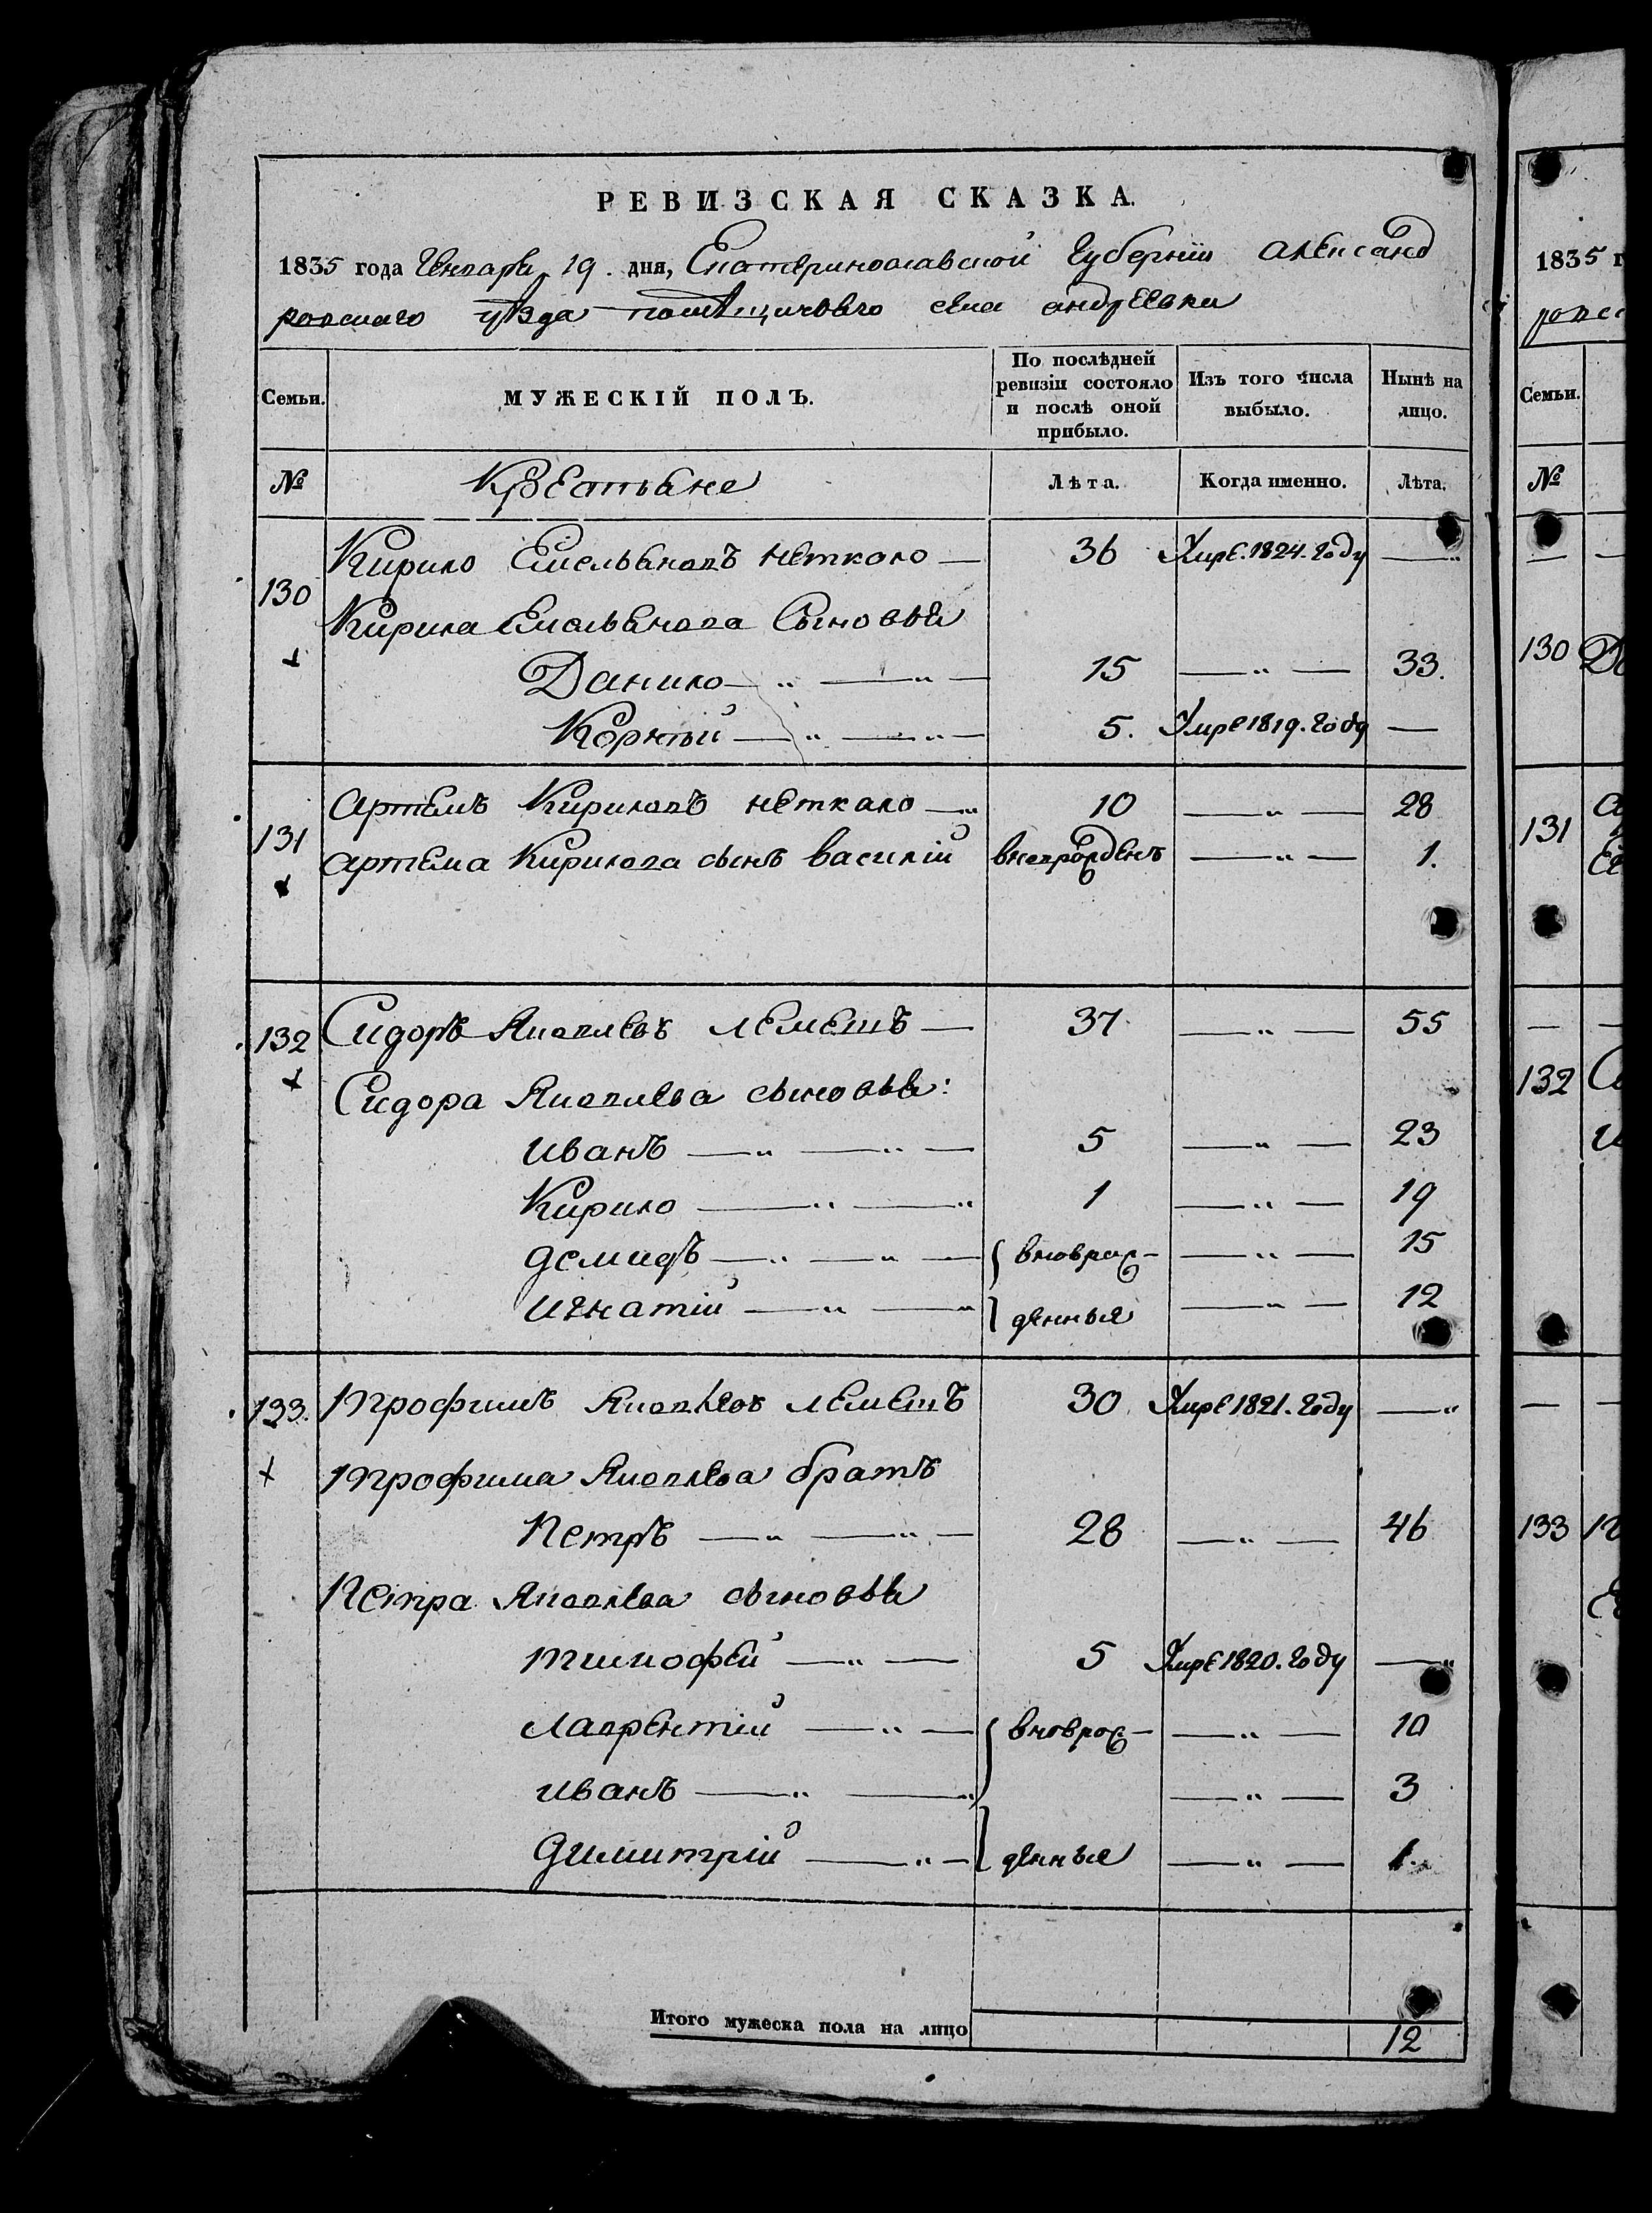 РЕВИЗСКАЯ СКАЗКА.
1835 года Генваря 19. дня, Екатеринославской Губернiи Александ
ровскаго уѣзда помѣщичьяго села андрѣевки
Семьи.
МУЖЕСКІЙ ПОЛЪ.
По послѣдней ревизіи состояло и послѣ оной прибыло.
Изъ того числа выбыло.
Нынѣ на лицо.
№ Крестьяне Лѣта. Когда именно. Лѣта.
130 Кирило Емельяновъ неткало — 36 Умре. 1824. году —
Кирила Емельянова Сыновья
Данило — 15 — 33.
Корнѣй — 5. Умре 1819. году —
131 Артемъ Кириловъ неткало — 10 — 28
Артема Кирилова сынъ василій вновьрожденъ — 1.
132 Сидоръ Яковлевъ лемешъ — 37 — 55
Сидора Яковлева сыновья:
иванъ — 5 — 23
Кирило — 1 — 19
демидъ — вноврож — 15
игнатій — денные — 12
133. Трофимъ Яковлевъ лемешъ 30. Умре 1821. году —
Трофима Яковлева братъ
Петръ — 28 — 46
Петра Яковлева сыновья
тимофей — 5 Умре 1820. году —
лаврентій — вноврож — 10
иванъ — 3
димитрій — денные — 1.
Итого мужеска пола на лицо 12
1835 г
Семьи.
№
130
131
132
133